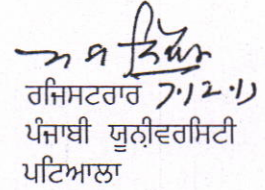 ਰਜਿਸਟਰਾਰ 7.12.11
ਪੰਜਾਬੀ ਯੂਨੀਵਰਸਿਟੀ
ਪਟਿਆਲਾ